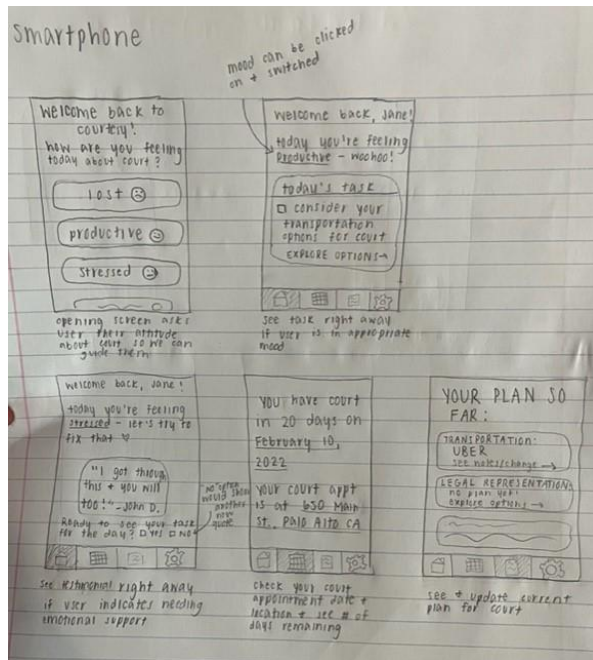 smartphone
mood can be clicked
on + switched
welcome back to
courtely!
how are you feeling
today about court?
lost
productive
stressed
opening screen asks
user their attitude
about court so we can
guide them
welcome back, Jane!
today you're feeling
productive - woohoo!
today's task
consider your
transportation
options for court
EXPLORE OPTIONS→
see task right away
if user is in appropriate
mood
welcome back, Jane!
today you're feeling
stressed - let's try to
fix that ♡
"I got through
this + you will
too!" -John D.
Ready to see your task
for the day? □ YES □ NO
"no" option
would show
another
new
quote
see testimonial right away
if user indicates needing
emotional support
you have court
in 20 days on
February 10,
2022
your court appt
is at 650 Main
St., Palo Alto CA
check your court
appointment date +
location + see # of
days remaining
YOUR PLAN SO
FAR:
TRANSPORTATION:
UBER
see notes/change →
LEGAL REPRESENTATION:
no plan yet!
explore options →
see + update current
plan for court